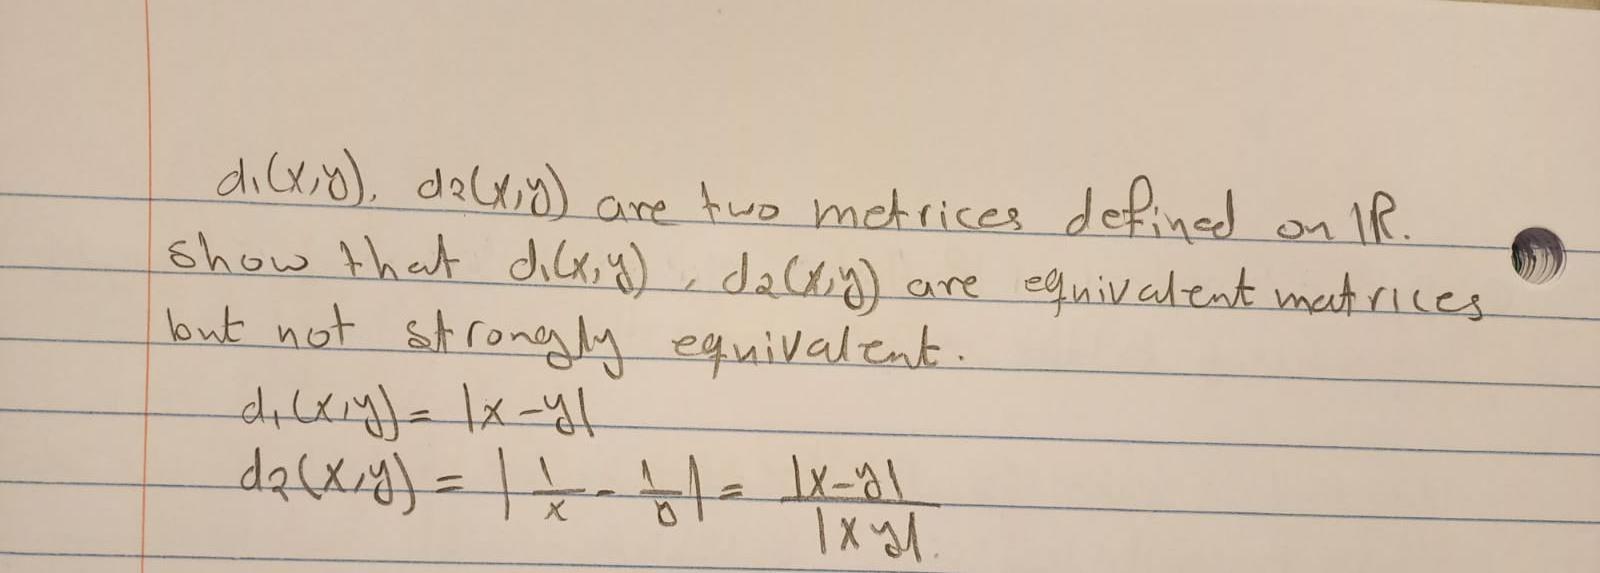 d₁(x,y), d₂(x,y) are two metrices defined on ℝ.
show that d₁(x,y), d₂(x,y) are equivalent matrices
but not strongly equivalent.
d₁(x,y) = |x-y|
d₂(x,y) = | 1/x - 1/y | = |x-y| / |xy|.